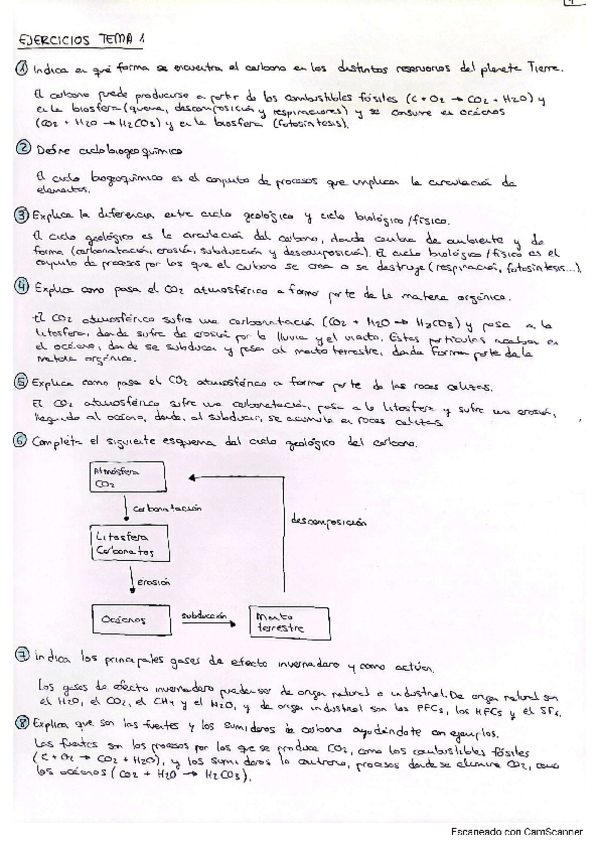 1
EJERCICIOS TEMA 1
① Indica en qué forma se encuentra el carbono en los distintos reservorios del planeta Tierra.
El carbono puede producirse a partir de los combustibles fósiles (C + O2 → CO2 + H2O) y
en la biosfera (quema, descomposición y respiraciones) y se consume en océanos
(CO2 + H2O → H2CO3) y en la biosfera (fotosíntesis).
② Define ciclo biogeoquímico
El ciclo biogeoquímico es el conjunto de procesos que implican la circulación de
elementos.
③ Explica la diferencia entre ciclo geológico y ciclo biológico/físico.
El ciclo geológico es la circulación del carbono, donde cambia de ambiente y de
forma (carbonatación, erosión, subducción y descomposición). El ciclo biológico/físico es el
conjunto de procesos por los que el carbono se crea o se destruye (respiración, fotosíntesis...)
④ Explica como pasa el CO2 atmosférico a formar parte de la materia orgánica.
El CO2 atmosférico sufre una carbonatación (CO2 + H2O → H2CO3) y pasa a la
litosfera, donde sufre de erosión por la lluvia y el viento. Estas partículas acaban en
el océano, donde se subducen y pasan al manto terrestre, donde forman parte de la
materia orgánica.
⑤ Explica como pasa el CO2 atmosférico a formar parte de las rocas calizas.
El CO2 atmosférico sufre una carbonatación, pasa a la litosfera y sufre una erosión,
llegando al océano, donde, al subducir, se acumula en rocas calizas
⑥ Completa el siguiente esquema del ciclo geológico del carbono.
Atmósfera
CO2
carbonatación
descomposición
Litosfera
Carbonatos
erosión
Océanos
subducción
Manto
terrestre
⑦ Indica los principales gases de efecto invernadero y como actúan.
Los gases de efecto invernadero pueden ser de origen natural o industrial. De origen natural son
el H2O, el CO2, el CH4 y el N2O, y de origen industrial son los PFCs, los HFCs y el SF6.
⑧ Explica que son las fuentes y los sumideros de carbono ayudándote con ejemplos.
Las fuentes son los procesos por los que se produce CO2, como los combustibles fósiles
(C + O2 → CO2 + H2O), y los sumideros lo contrario, procesos donde se elimina CO2, como
los océanos (CO2 + H2O → H2CO3).
Escaneado con CamScanner